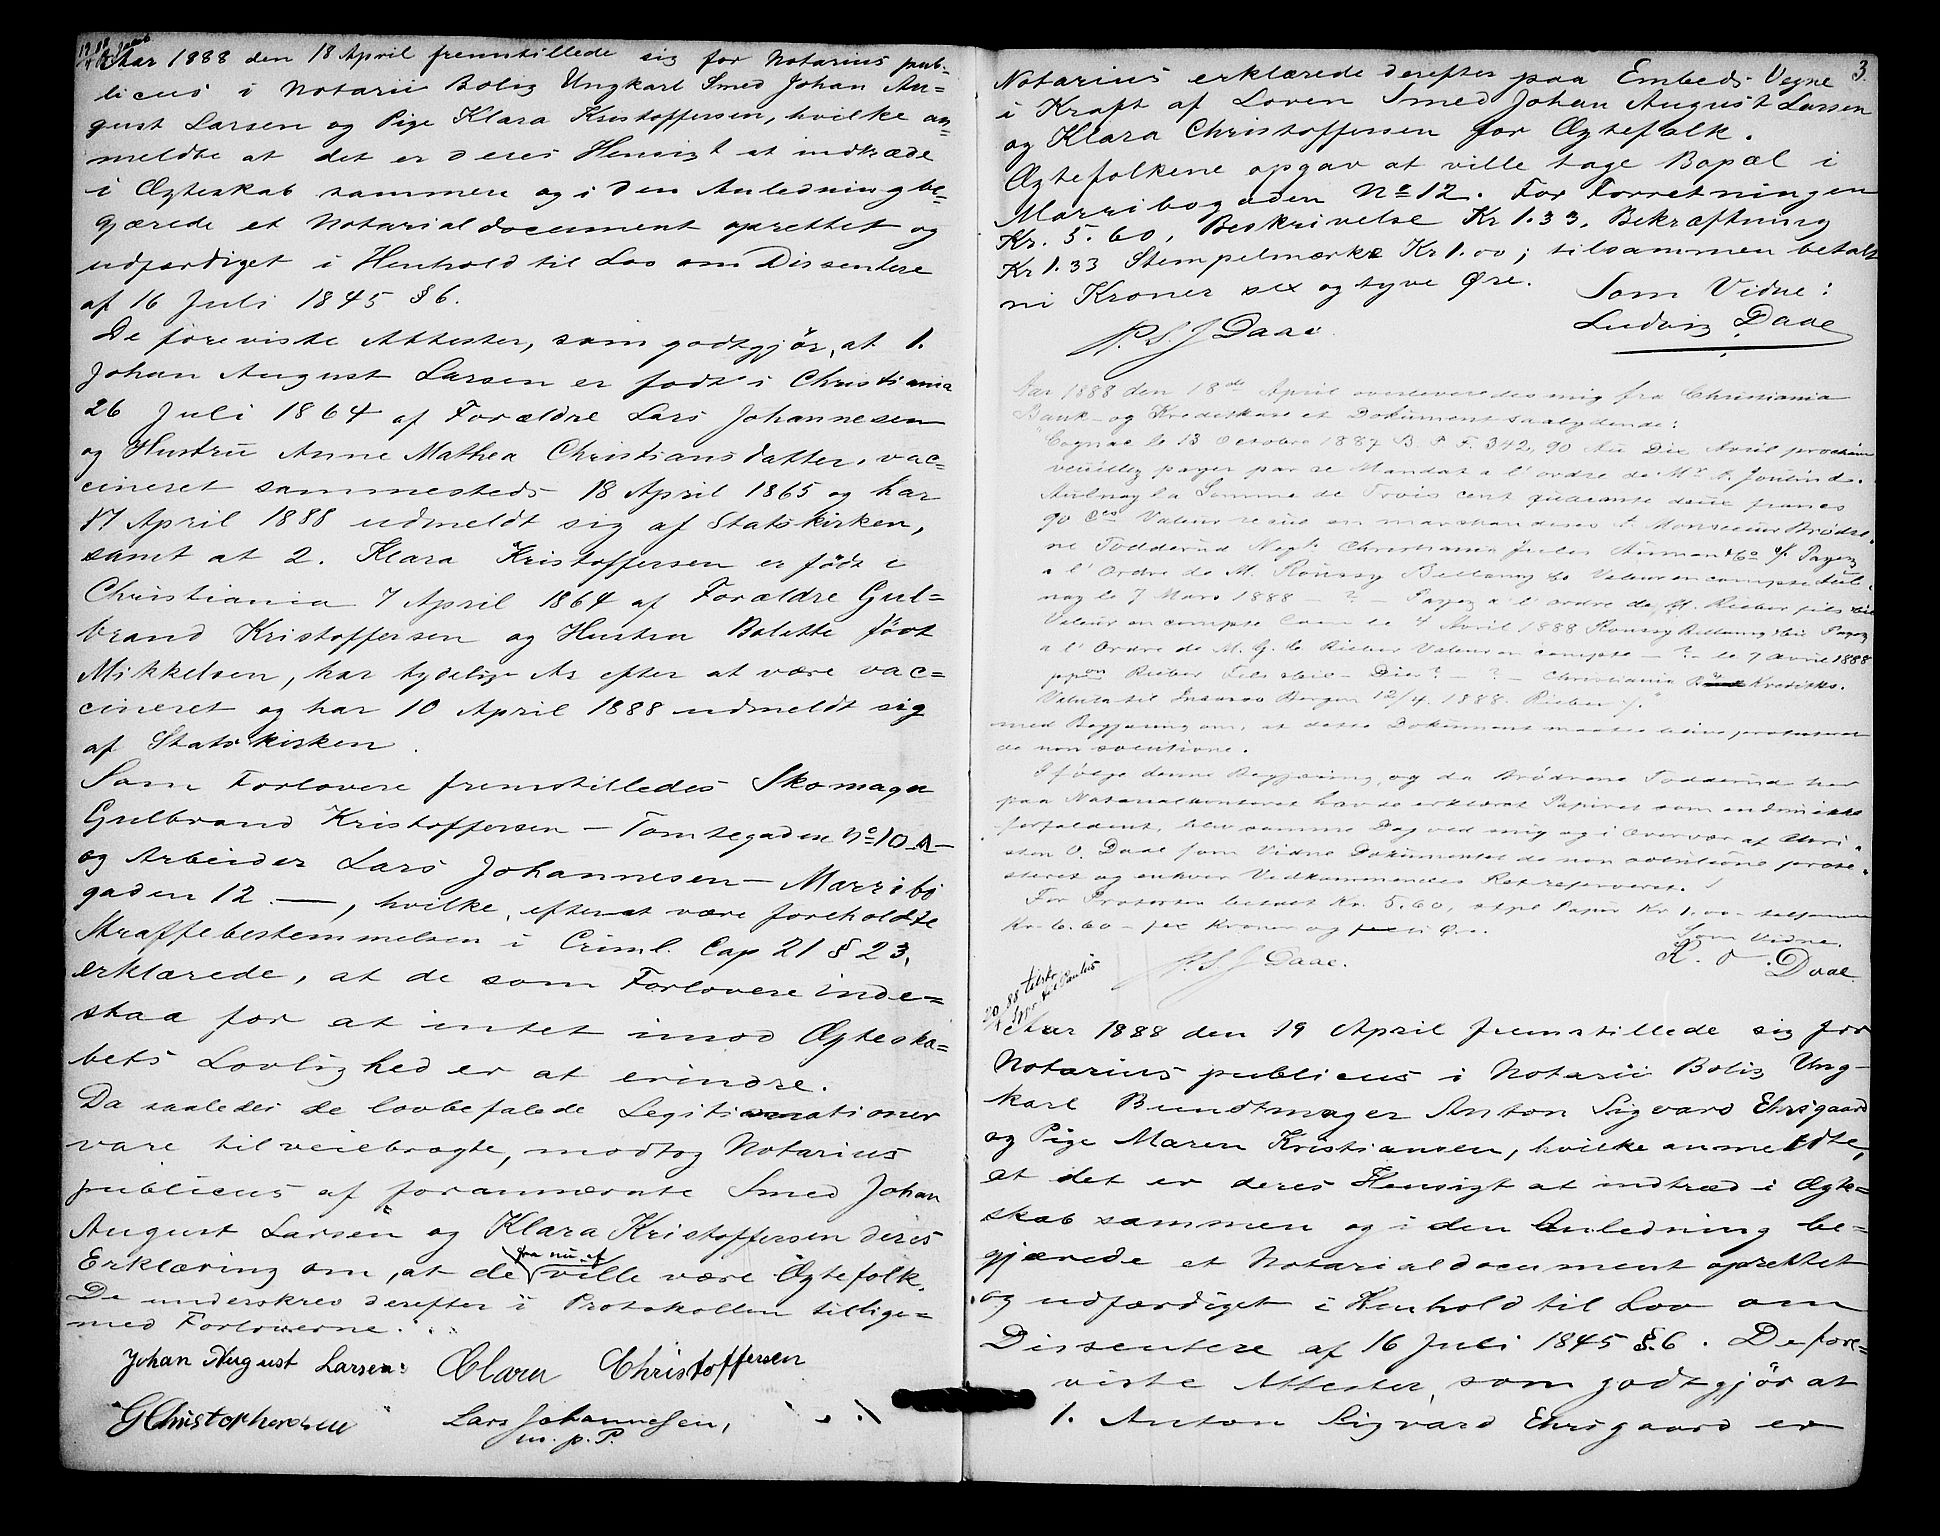 Aar 1888 den 18 April fremstillede sig for Notarius pub-
licus i Notarii Bolig Ungkarl Smed Johan Au-
gust Larsen og Pige Klara Kristoffersen, hvilke an-
meldte at det er deres Hensigt at indtræde
i Ægteskab sammen og i den Anledning be-
gjærede et Notarialdocument oprettet og
udfærdiget i Henhold til Lov om Dissentere
af 16 Juli 1845 § 6.
De foreviste Attester, som godtgjør, at 1.
Johan August Larsen er født i Christiania
26 Juli 1864 af Forældre Lars Johannesen
og Hustru Anne Mathea Christiansdatter, vac-
cineret sammesteds 18 April 1865 og har
17 April 1888 udmeldt sig af Statskirken,
samt at 2. Klara Kristoffersen er født i
Christiania 7 April 1864 af Forældre Gul-
brand Kristoffersen og Hustru Bolette født
Mikkelsen, har tydelige Ar efter at være vac-
cineret og har 10 April 1888 udmeldt sig
af Statskirken.
Som Forlovere fremstilledes Skomager
Gulbrand Kristoffersen – Tomtegaden No 10 A –
og Arbeider Lars Johannesen – Marribø
gaden 12 –, hvilke, efter at være foreholdte
Straffebestemmelsen i Criml. Cap 21 § 23,
erklærede, at de som Forlovere inde-
staa for at intet imod Ægteska-
bets Lovlighed er at erindre.
Da saaledes de lovbefalede Legitimationer
vare tilveiebragte, modtog Notarius
publicus af forannævnte Smed Johan
August Larsen og Klara Kristoffersen deres
fra nu af
Erklæring om, at de ville være Ægtefolk.
De underskrev derefter i Protokollen tillige-
med Forloverne.
Johan August Larsen. Clara Christoffersen
GChristophersen Lars Johannesen,
m. p. P.
3.
Notarius erklærede derefter paa Embeds Vegne
i Kraft af Loven Smed Johan August Larsen
og Klara Christoffersen for Ægtefolk.
Ægtefolkene opgav at ville tage Bopæl i
Marribogaden No 12. For Forretningen
Kr. 5.60, Beskrivelse Kr 1.33, Bekræftning
Kr 1.33 Stempelmærke Kr 1.00; tilsammen betalt
ni Kroner sex og tyve Øre. Som Vidne:
Daae. Ludvig Daae
Aar 1888 den 18de April overleveredes mig fra Christiania
Bank- og Kreditkasse et Dokument saalydende:
"Cognac le 13 Octobre 1887 B. P. F. 342,90 Au Dix Avril prochain
veuillez payer par ce Mandat a l'ordre de Mr
la Somme de Trois cent quarante deux francs
90 ces Valeur recue en marchandises Monsieur Brødre-
ne Todderud Negt. Christiania Jules Co Payez
a l'Ordre de M. Roussy Bellamy Co Valeur en compte
le 7 Mars 1888 – ? – Payez a l'ordre de M. Rieber fils
Valeur en compte le 4 Avril 1888 Roussy Bellamy Payez
a l'Ordre de M. G. C. Rieber Valeur en compte – ? – le 7 Avril 1888
Rieber Fils – ? – ? – Christiania Kreditks.
Valuta til Incasso Bergen 12/4. 1888. Rieber
med Begjæring om, at dette Dokument maatte blive protesteret
de non solutione.
Ifølge denne Begjæring, og da Brødrene Todderud har
paa Notarialkontoret Papiret som endnu ikke
forfaldent, blev samme Dag ved mig og i Overvær af Chri-
sten O. Daae som Vidne Dokumentet de non solutione prote-
steret og enhver Vedkommendes Ret reserveret.
For Protesten betalt Kr. 5.60, stpl Papir Kr 1.00 – tilsammen
Kr. 6.60 – sex Kroner og Øre. Som Vidne.
Daae. Daae.
Aar 1888 den 19 April fremstillede sig for
Notarius publicus i Notarii Bolig Ung-
karl Bundtmager Anton Sigvard Ehrsgaard
og Pige Maren Kristiansen, hvilke anmeldte,
at det er deres Hensigt at indtræd i Ægte-
skab sammen og i den Anledning be-
gjærede et Notarialdocument oprettet
og udfærdiget i Henhold til Lov om
Dissentere af 16 Juli 1845 §. 6. De fore-
viste Attester, som godtgjør at
1. Anton Sigvard Ehrsgaard er